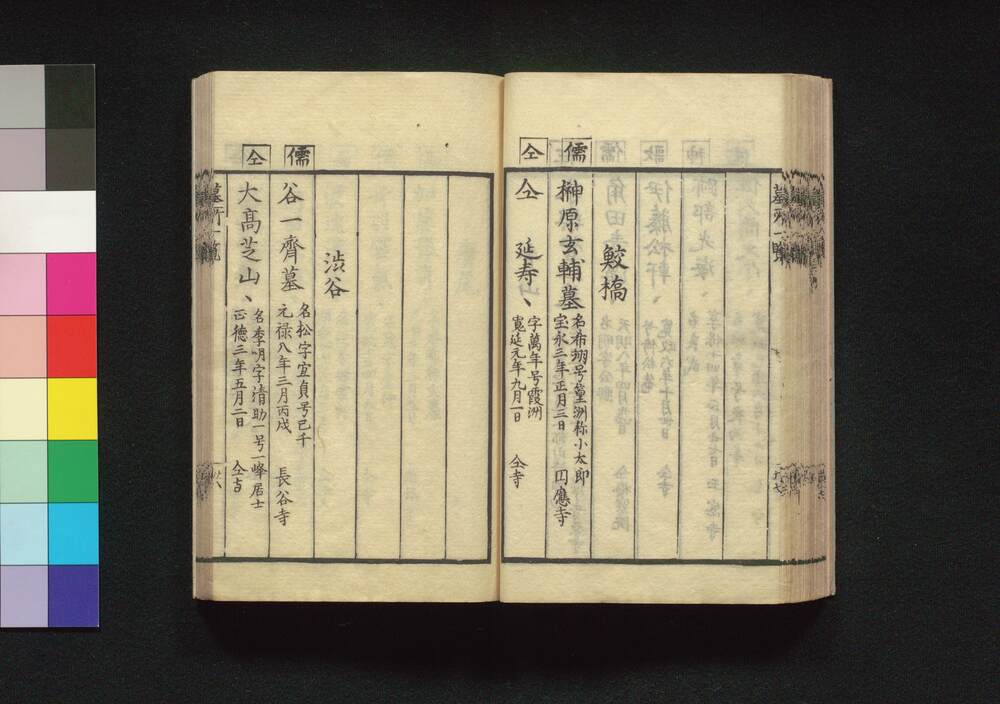 鮫橋
儒
榊原玄輔墓
名希翊号篁洲称小太郎
宝永三年正月三日　円應寺
仝
仝　延寿、
字萬年号霞洲
寛延元年九月一日　仝寺
墓所一覧
渋谷
儒
谷一齊墓
名松字宜貞号已千
元禄八年三月丙戌　長谷寺
仝
大髙芝山、
名季明字清助一号一峰居士
正徳三年五月二日　仝寺
墓所一覧